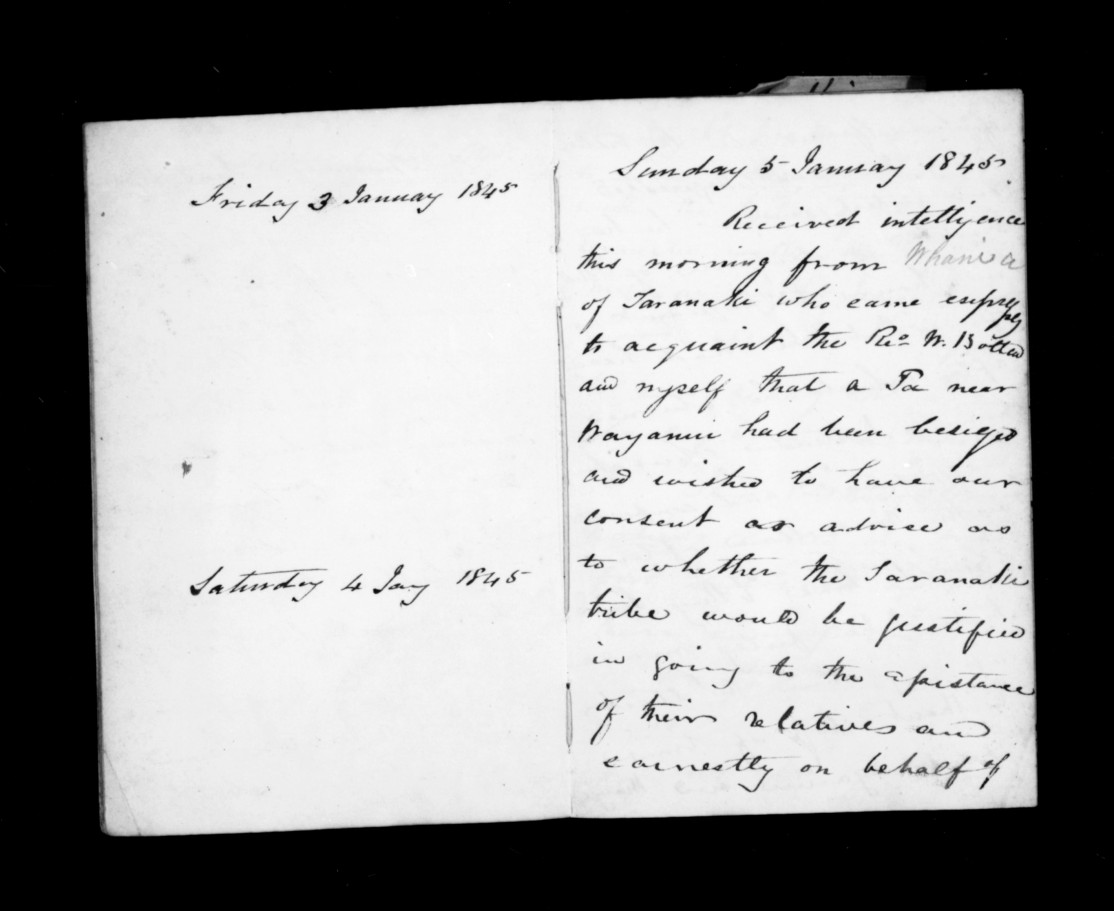 Friday 3 January 1845
Saturday 4 Jany 1845
Sunday 5 January 1845
Received intelligence
this morning from
of Taranaki who came expressly
to acquaint the Revd W. Bolland
and myself that a Pa near
had been besieged
and wished to have our
consent or advise as
to whether the Taranaki
tribe would be justified
in going to the assistance
of their relatives and
earnestly on behalf of